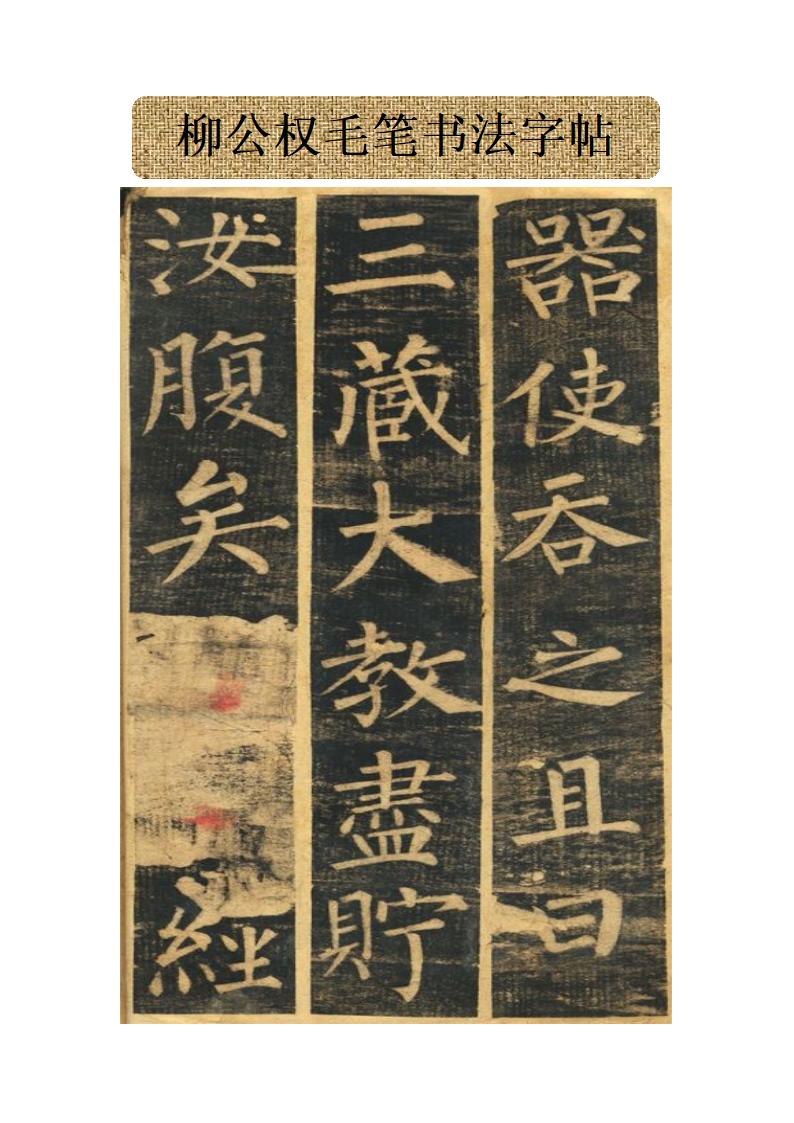 柳公权毛笔书法字帖
器使吞之且曰
三藏大教盡貯
汝腹矣
經